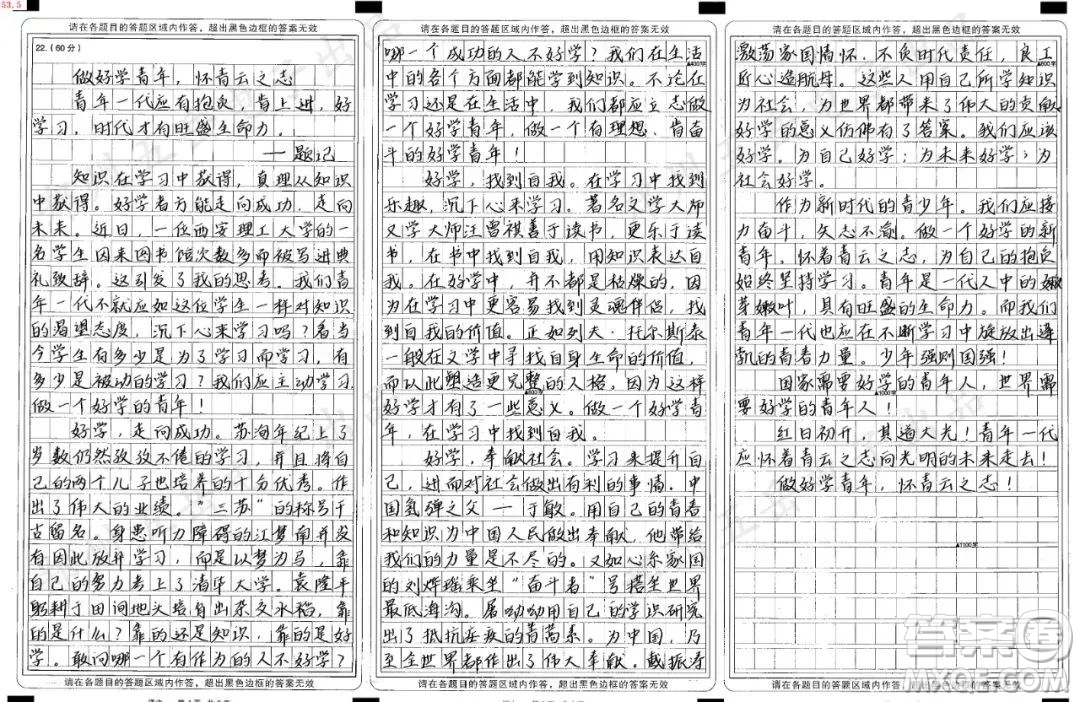 53.5
请在各题目的答题区域内作答，超出黑色边框的答案无效
22.(60分)
做好学青年，怀青云之志
青年一代应有抱负，肯上进，好
学习，时代才有旺盛生命力。
——题记
知识在学习中获得，真理从知识
中获得。好学者方能走向成功，走向
未来。近日，一位西安理工大学的一
名学生因来图书馆次数多而被写进典
礼致辞。这引发了我的思考。我们青
年一代不就应如这位学生一样对知识
的渴望态度，沉下心来学习吗？看当
今学生有多少是为了学习而学习，有
多少是被动的学习？我们应主动学习，
做一个好学的青年！
好学，走向成功。苏洵年纪上了
岁数仍然孜孜不倦的学习，并且将自
己的两个儿子也培养的十分优秀。作
出了伟大的业绩。“三苏”的称号千
古留名。身患听力障碍的江梦南并没
有因此放弃学习，而是以梦为马，靠
自己的努力考上了清华大学。袁隆平
躬耕于田间地头培育出杂交水稻，靠
的是什么？靠的还是知识，靠的是好
学。敢问哪一个有作为的人不好学？
请在各题目的答题区域内作答，超出黑色边框的答案无效
请在各题目的答题区域内作答，超出黑色边框的答案无效
哪一个成功的人不好学？我们在生活
中的各个方面都能学到知识。不论在
学习还是在生活中，我们都应立志做
一个好学青年，做一个有理想、肯奋
斗的好学青年！
好学，找到自我。在学习中找到
乐趣，沉下心来学习。著名文学大师
文学大师汪曾祺善于读书，更乐于读
书，在书中找到自我，用知识表达自
我。在好学中，并不都是枯燥的，因
为在学习中更容易找到灵魂伴侣，找
到自我的价值。正如列夫·托尔斯泰
一般在文学中寻找自身生命的价值，
而以此塑造更完整的人格。因为这样
好学才有了一些意义。做一个好学青
年，在学习中找到自我。
好学，奉献社会。学习来提升自
己，进而对社会做出有利的事情。中
国氢弹之父——于敏。用自己的青春
和知识为中国人民做出奉献，他带给
我们的力量是不尽的。又如心系家国
的刘烨瑶乘坐“奋斗者”号搭坐世界
最低海沟。屠呦呦用自己的学识研究
出了抵抗疟疾的青蒿素。为中国，乃
至全世界都作出了伟大奉献。戴振涛
请在各题目的答题区域内作答，超出黑色边框的答案无效
请在各题目的答题区域内作答，超出黑色边框的答案无效
激荡家国情怀，不负时代责任，良工
匠心造航母。这些人用自己所学知识
为社会，为世界都带来了伟大的贡献
好学的意义仿佛有了答案。我们应该
好学。为自己好学；为未来好学；为
社会好学。
作为新时代的青少年。我们应接
力奋斗，矢志不渝。做一个好学的新
青年，怀着青云之志，为自己的抱负
始终坚持学习。青年是一代人中的嫩
芽嫩叶，具有旺盛的生命力。而我们
青年一代也应在不断学习中旋放出逢
凯的青春力量。少年强则国强！
国家需要好学的青年人，世界需
要好学的青年人！
红日初开，其道大光！青年一代
应怀着青云之志向光明的未来走去！
做好学青年，怀青云之志！
▲1100字
请在各题目的答题区域内作答，超出黑色边框的答案无效
答案圈
MXQE.COM